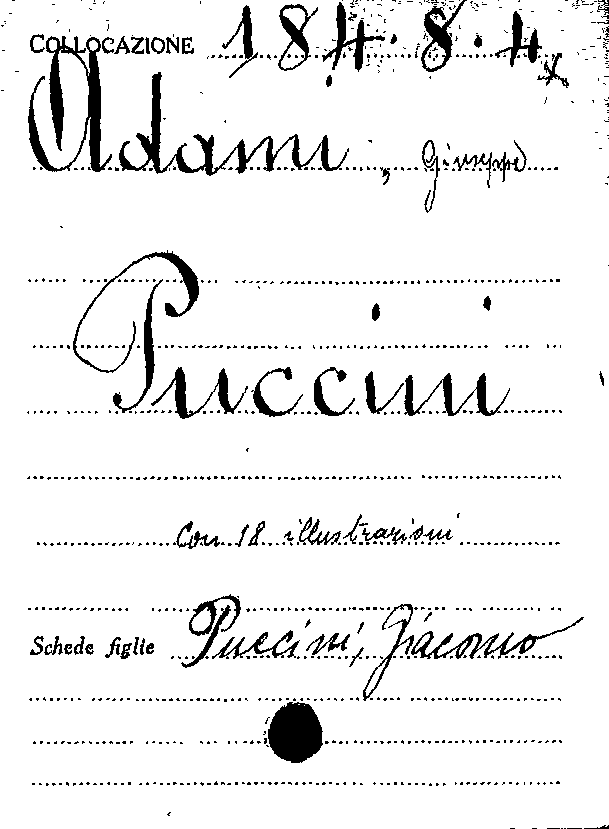 COLLOCAZIONE 184.8.4
Adami, Giuseppe
Puccini
Con 18 illustrazioni
Schede figlie Puccini, Giacomo